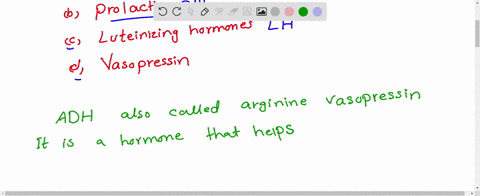 b, Prolact
c, Luteinizing hormones LH
d, Vasopressin
ADH also called arginine vasopressin
It is a hormone that helps